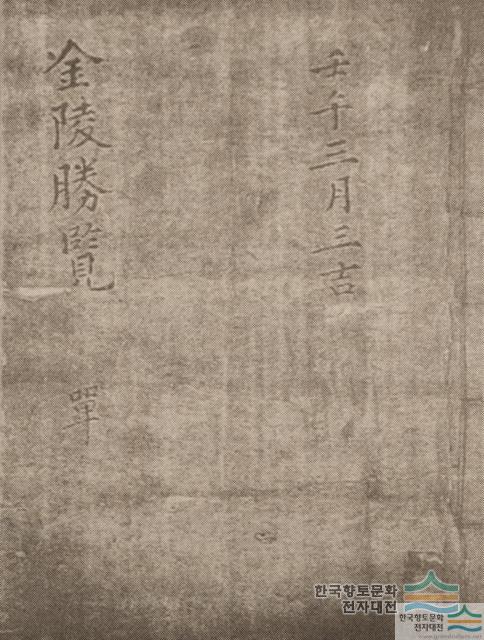 壬午三月三吉
金陵勝覽
單
한국향토문화
전자대전
한국향토문화
전자대전